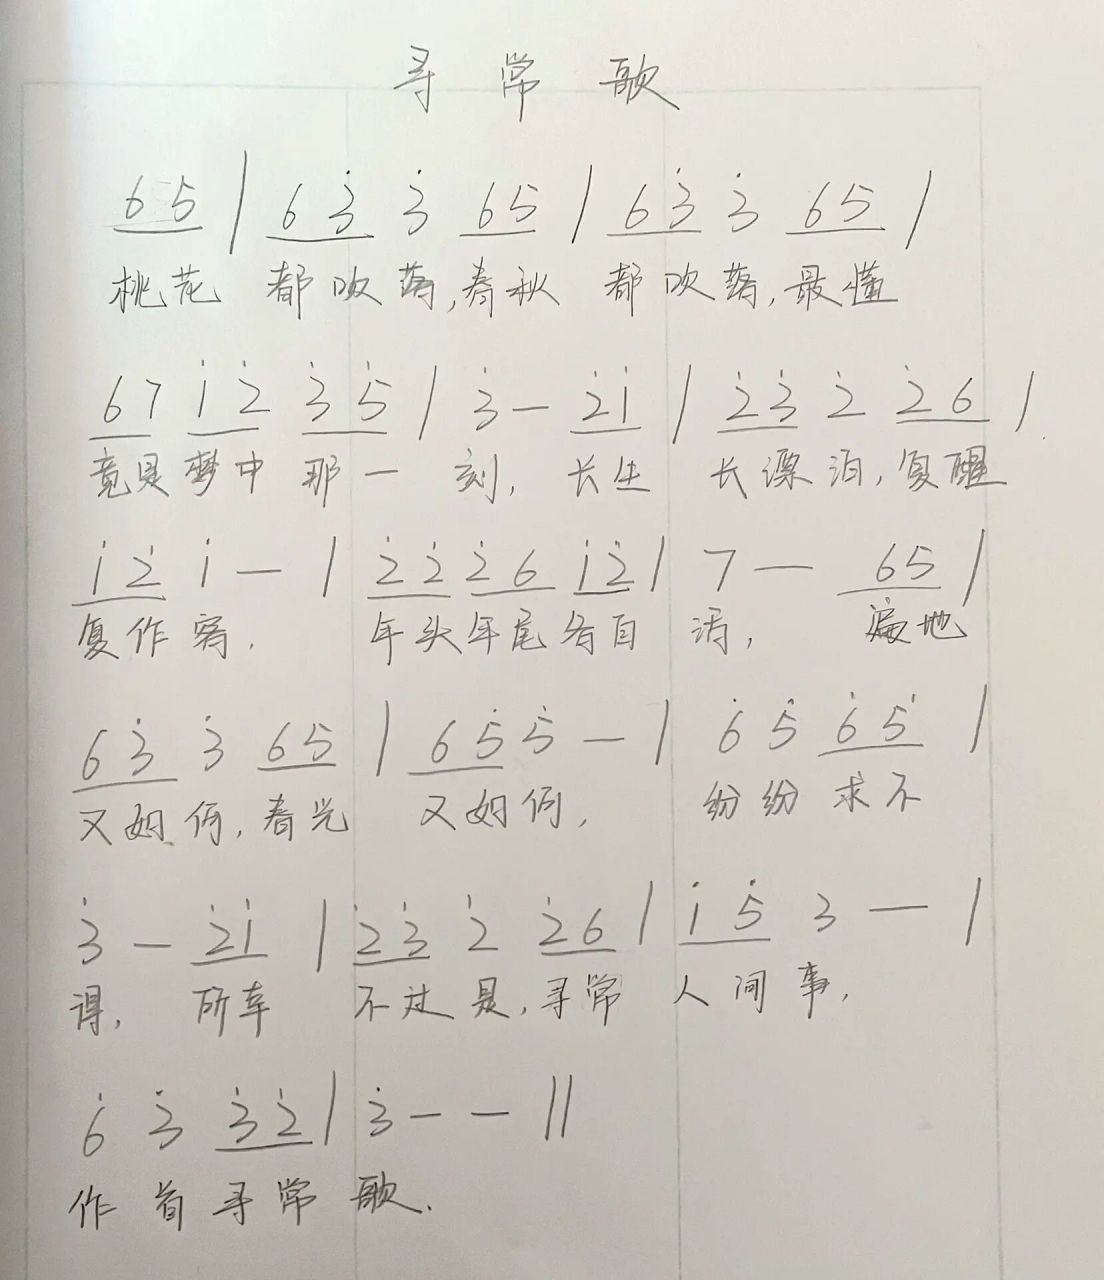 寻常歌
65 | 63̇ 3̇ 65 | 63̇ 3̇ 65 |
桃花 都吹落,春秋 都吹落,最懂
67 1̇2̇ 3̇5̇ | 3̇ — 2̇1̇ | 2̇3̇ 2̇ 2̇6 |
竟是梦中那一刻, 长生 长漂泊,复醒
1̇2̇ 1̇ — | 2̇2̇ 2̇6 1̇2̇ | 7 — 65 |
复作客. 年头年尾各自 活, 遍地
63̇ 3̇ 65 | 65̇ 5̇ — | 6̇ 5̇ 6̇5̇ |
又如何,春光 又如何, 纷纷求不
3̇ — 2̇1̇ | 2̇3̇ 2̇ 2̇6 | 1̇5̇ 3 — |
得, 所幸 不过是,寻常 人间事,
6̇ 3̇ 3̇2̇ | 3̇ — — ||
作首寻常 歌.